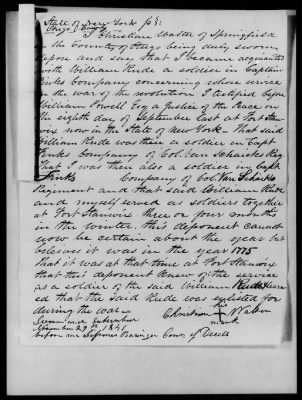 State of New York } ss:
Otsego County
I Christian Walter of Springfield
in the County of Otsego being duly sworn
depose and say that I became acquainted
with William Rude a soldier in Captain
Finks Company concerning whose service
in the war of the revolution I testified before
William Powell Esq a Justice of the Peace on
the eighth day of September last at Fort Stan-
wix now in the State of New York. That said
William Rude was then a soldier in Capt
Finks Company of Col. Van Schaicks Reg
That I was then also a soldier in Capt
Finks Company of Col. Van Schaicks
Regiment and that said William Rude
and myself served as soldiers together
at Fort Stanwix three or four months
in the winter. This deponent cannot
now be certain about the year but
believes it was in the year 1775
that it was at that time at Fort Stanwix
that this deponent knew of the service
as a soldier of the said William Rude &
ed that the said Rude was enlisted for
during the war.
Sworn and subscribed
November 29th 1841
before me Com. of Deeds
Christian his + mark Walter